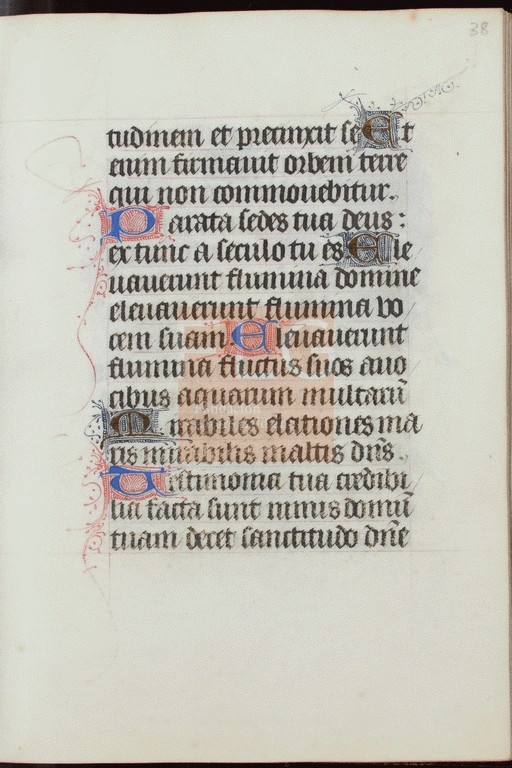 38
tudinem et precinxit se Et
enim firmauit orbem terre
qui non commouebitur.
Parata sedes tua deus :
ex tunc a seculo tu es Ele
uauerunt flumina domine
eleuauerunt flumina vo
cem suam Eleuauerunt
flumina fluctus suos a uo
cibus aquarum multarū
Mirabiles elationes ma
ris mirabilis in altis dn̄s.
Testimonia tua credibi
lia facta sunt nimis domū
tuam decet sanctitudo dn̄e